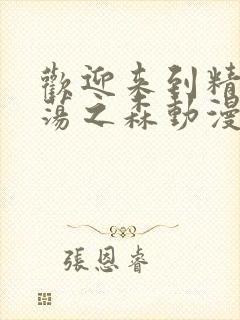 歡迎来到精
蕩之森動漫
張恩睿